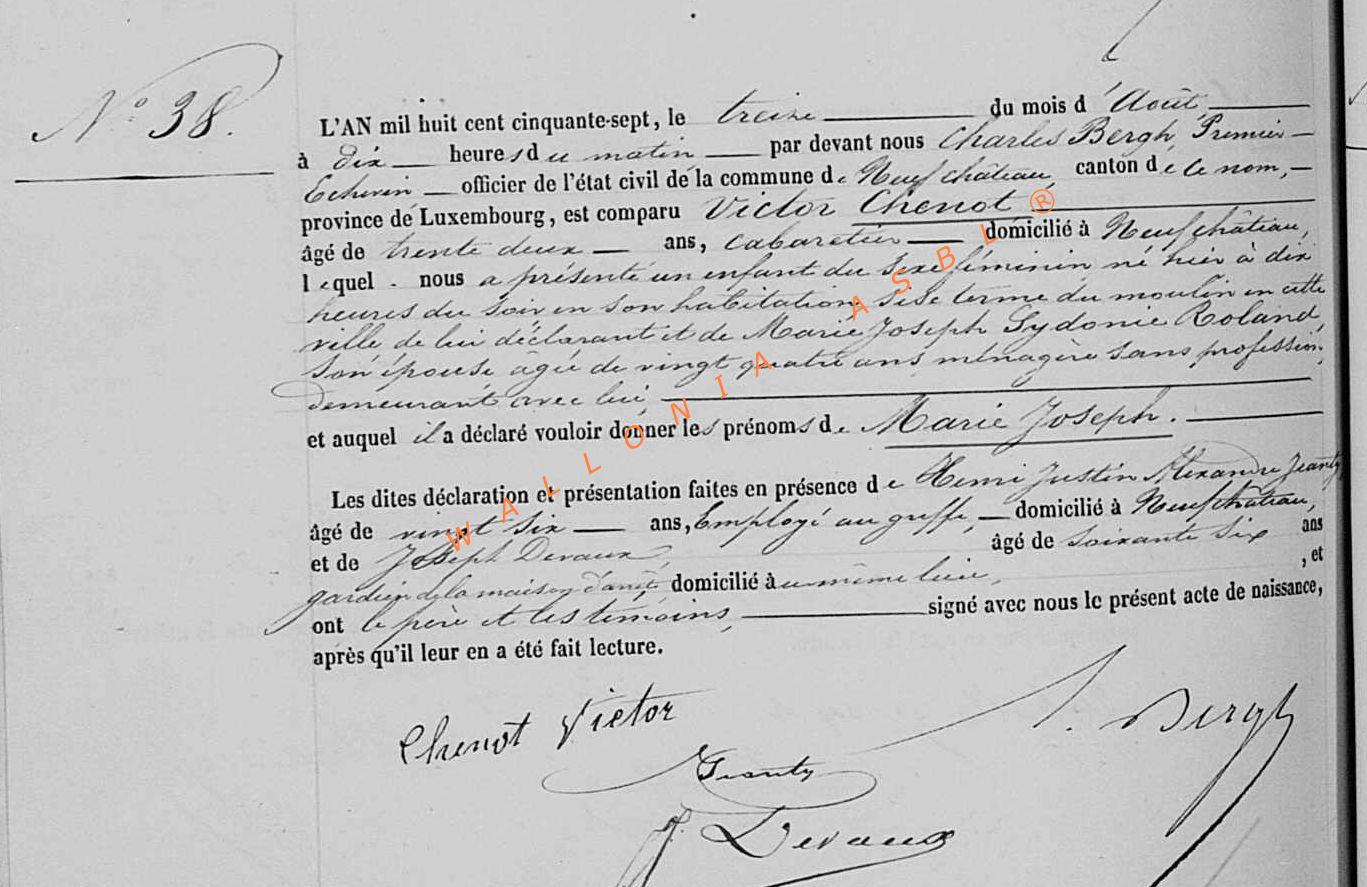 N° 38.
L'AN mil huit cent cinquante-sept, le treize du mois d'Août
à dix heures du matin par devant nous Charles Bergh, Premier
Echevin officier de l'état civil de la commune de Neufchâteau, canton de ce nom,
province de Luxembourg, est comparu Victor Chenot
âgé de trente deux ans, cabaretier domicilié à Neufchâteau,
lequel nous a présenté un enfant du sexe féminin né hier à dix
heures du soir en son habitation, sise terme du moulin en cette
ville de lui déclarant et de Marie Joseph Sydonie Roland,
son épouse âgée de vingt quatre ans ménagère sans profession,
demeurant avec lui,
et auquel il a déclaré vouloir donner les prénoms de Marie Joseph.
Les dites déclaration et présentation faites en présence de Henri Justin Alexandre Jeanty
âgé de vingt six ans, Employé au greffe, domicilié à Neufchateau,
et de Joseph Devaux, âgé de soixante six ans
gardien de la maison d'arrêt, domicilié au même lieu, , et
ont le père et les témoins, signé avec nous le présent acte de naissance,
après qu'il leur en a été fait lecture.
Chenot Victor
Bergh
Jeanty
J. Devaux
WALLONIA ASBL ®